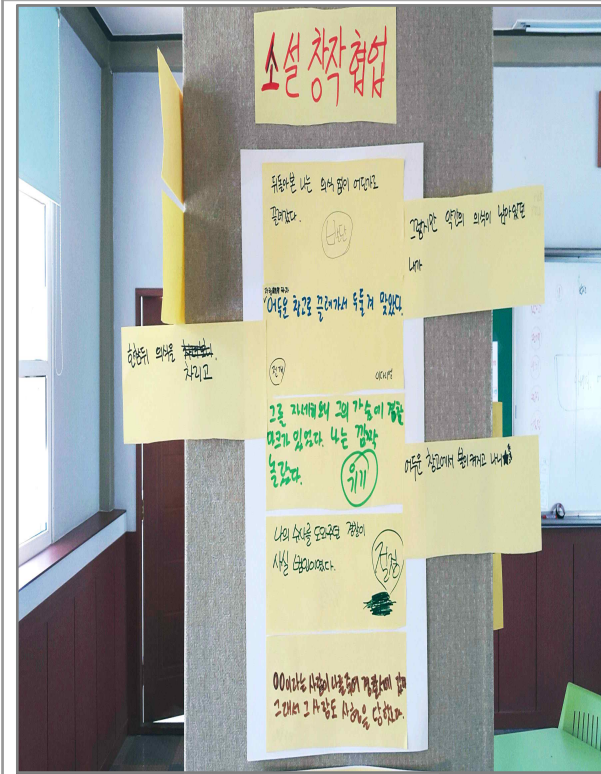 소설 창작 협업
뒤돌아본 나는 의식 없이 어딘가로
끌려갔다.
그렇지만 약간의 의식이 남아있던
내가
어두운 창고로 끌려가서 두들겨 맞았다.
전개
한참뒤 의식을
차리고
그를 자세히보니 그의 가슴에 경찰
마크가 있었다. 나는 깜짝
놀랐다.
위기
어두운 창고에서 불이 켜지고 나니
나의 수사를 도와주던 경찰이
사실 범인이었다.
절정
00이라는 사람이 나를
그래서 그 사람도 사형을 당했다.